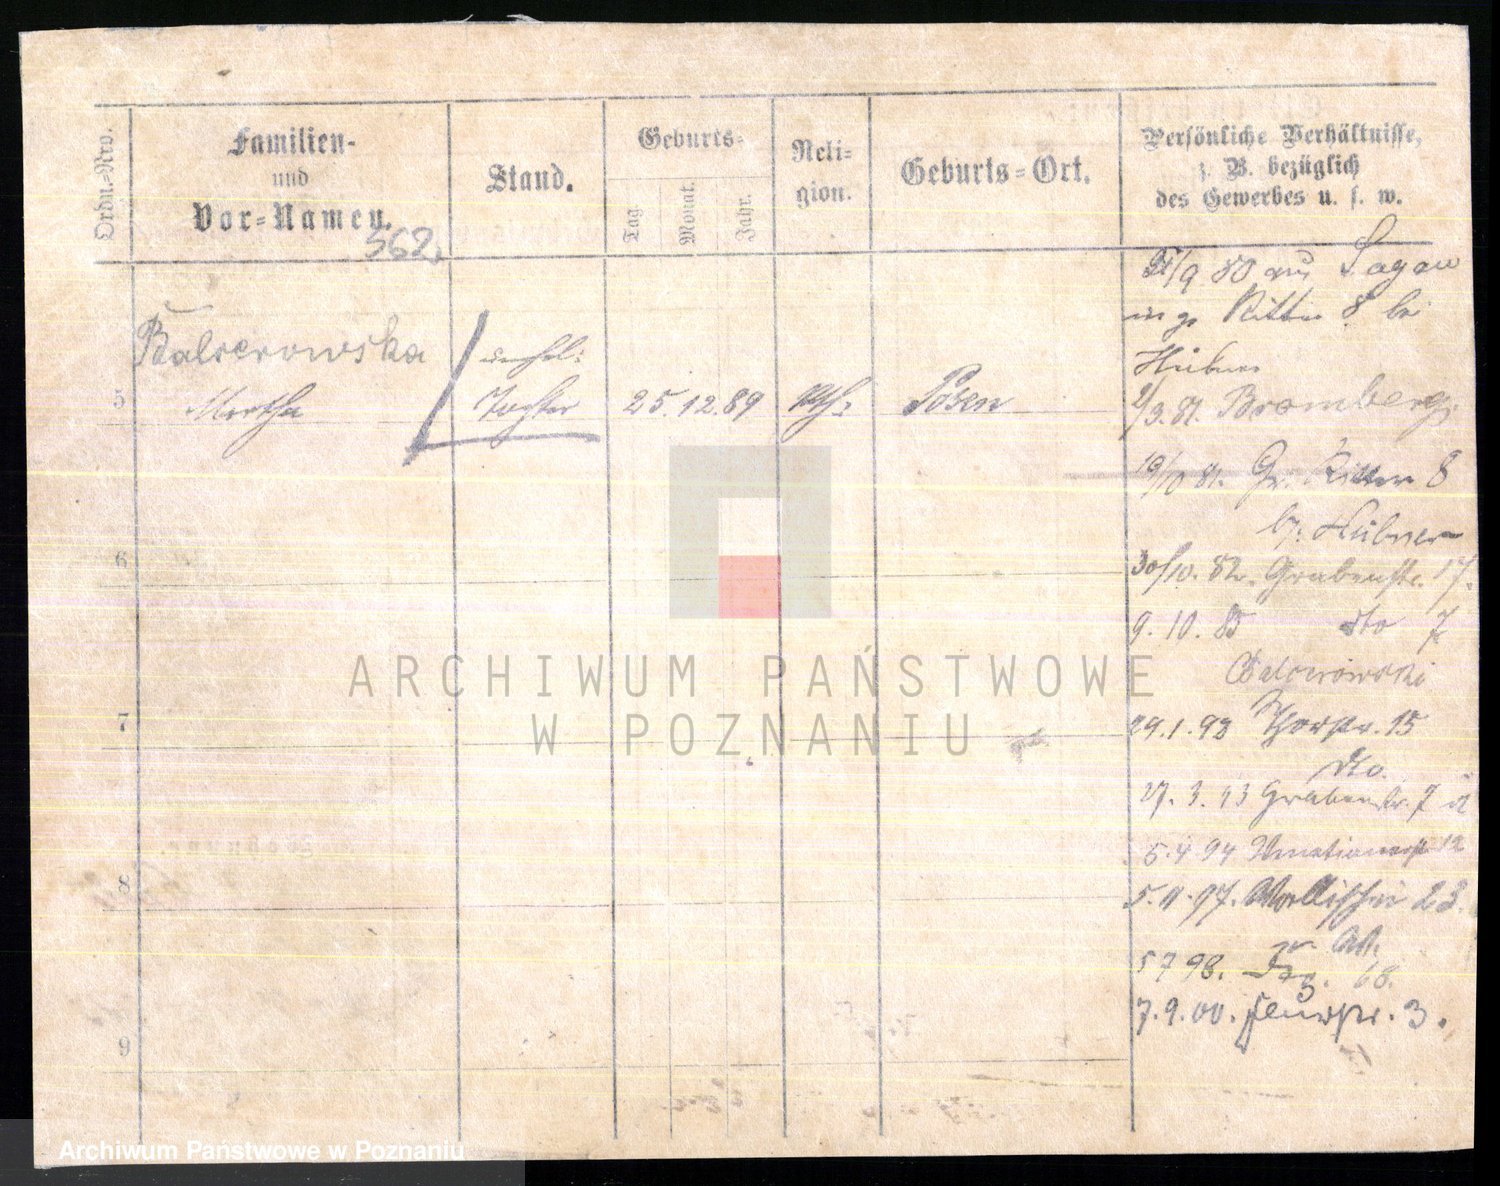 Ordn.=Nro.
Familien-
und
Vor=Namen.
Stand.
Geburts-
Tag.
Monat.
Jahr.
Reli=
gion.
Geburts=Ort.
Persönliche Verhältnisse,
z. B. bezüglich
des Gewerbes u. s. w.
562.
/9 80 aus Sagan
Ritter 8 bei
Hübner
Balcerowska
unehel:
5
Martha
Tochter
25.12.89
kth:
Posen
2/3. 81. Bromberg.
19/10 81. Gr. Ritter 8
b/: Hübner
6
30/10. 82. Grabenstr. 17.
9. 10. 85 dto 7
Balcerowski
7
29.1.93 Thorstr. 15
dto.
27. 3. 93 Grabenstr. 7
5.4 94 12
8
5. 11. 97. Wallischei 23.
5 7 98. 68.
7. 9. 00. 3.
9
ARCHIWUM PAŃSTWOWE
W POZNANIU
Archiwum Państwowe w Poznaniu